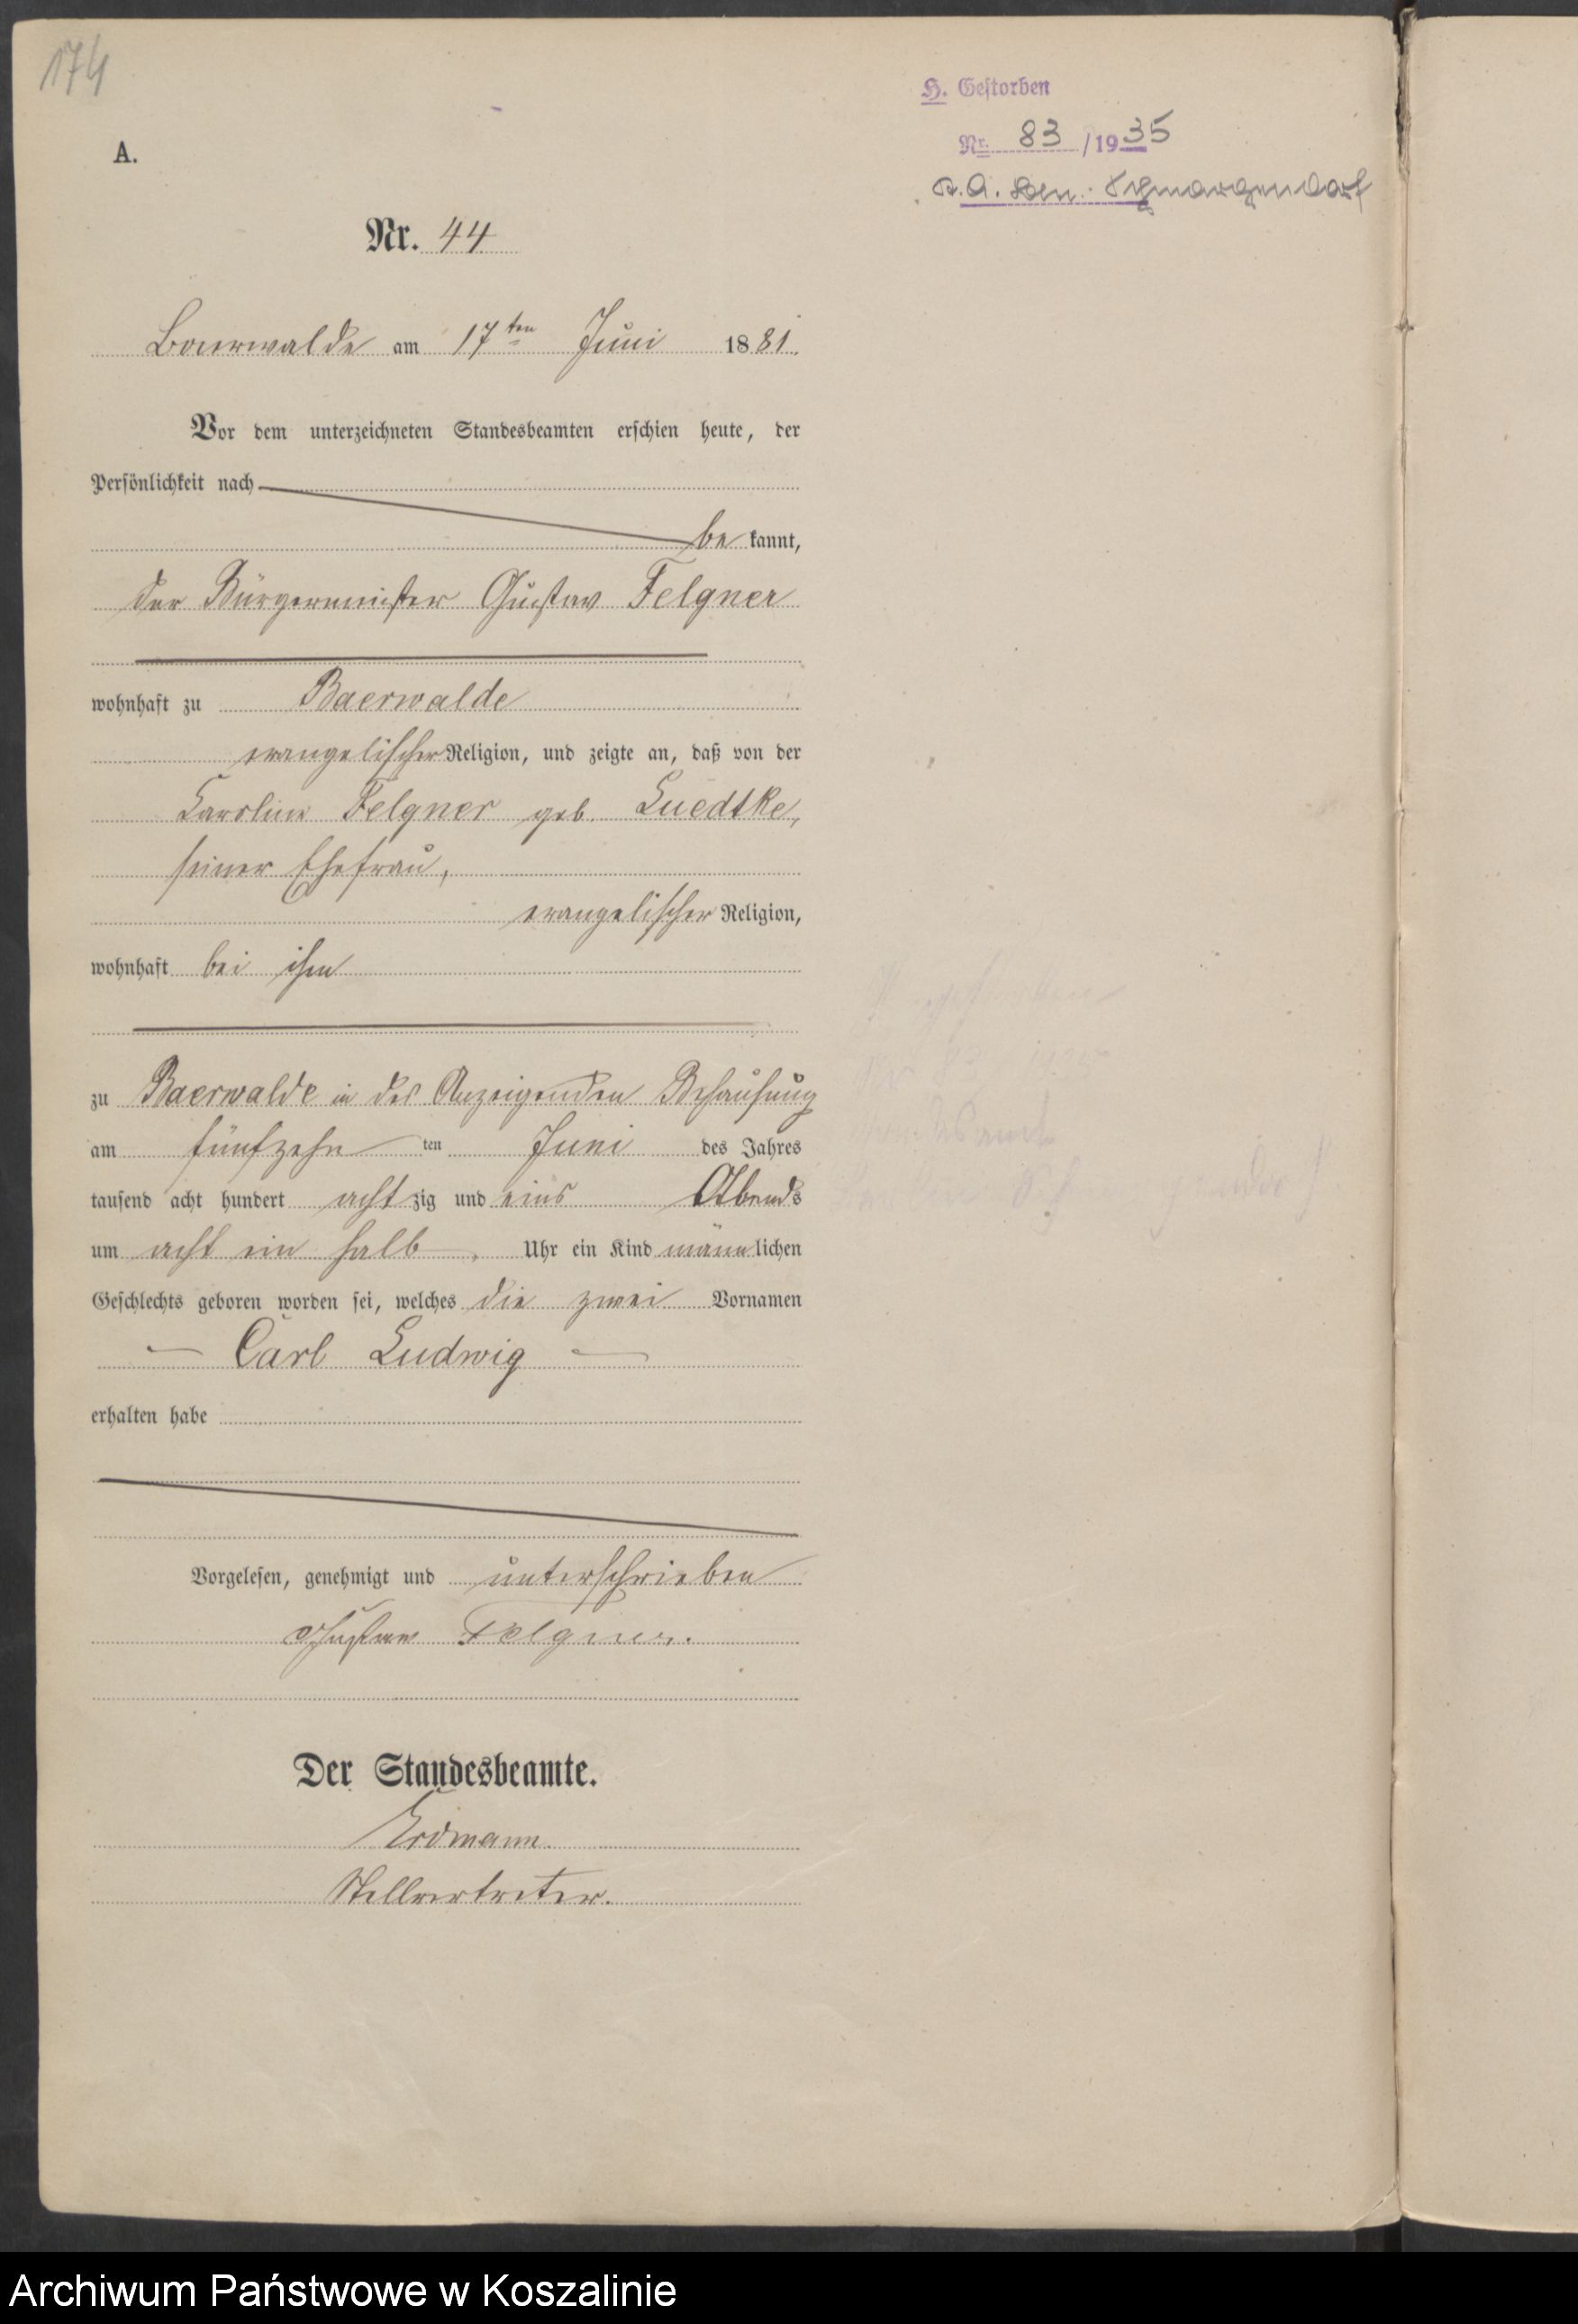 174
H. Gestorben
Nr. 83 /1935
St. A. Bln. Schmargendorf
A.
Nr. 44
Baerwalde am 17ten Juni 1881.
Vor dem unterzeichneten Standesbeamten erschien heute, der
Persönlichkeit nach
be kannt,
der Bürgermeister Gustav Felgner
wohnhaft zu Baerwalde
evangelischer Religion, und zeigte an, daß von der
Caroline Felgner geb. Luedtke,
seiner Ehefrau,
evangelischer Religion,
wohnhaft bei ihm
zu Baerwalde in des Anzeigenden Behausung
am fünfzehn ten Juni des Jahres
tausend acht hundert acht zig und eins Abends
um acht ein halb Uhr ein Kind männlichen
Geschlechts geboren worden sei, welches die zwei Vornamen
Carl Ludwig
erhalten habe
Vorgelesen, genehmigt und unterschrieben
Gustav Felgner.
Der Standesbeamte.
Erdmann.
Stellvertreter.
Archiwum Państwowe w Koszalinie